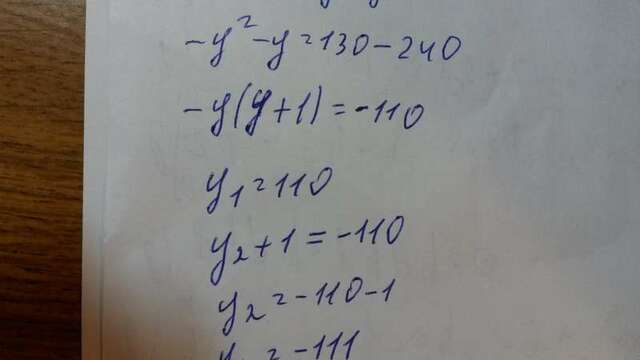 -y²-y=130-240
-y(y+1)=-110
y₁=110
y₂+1=-110
y₂=-110-1
=-111